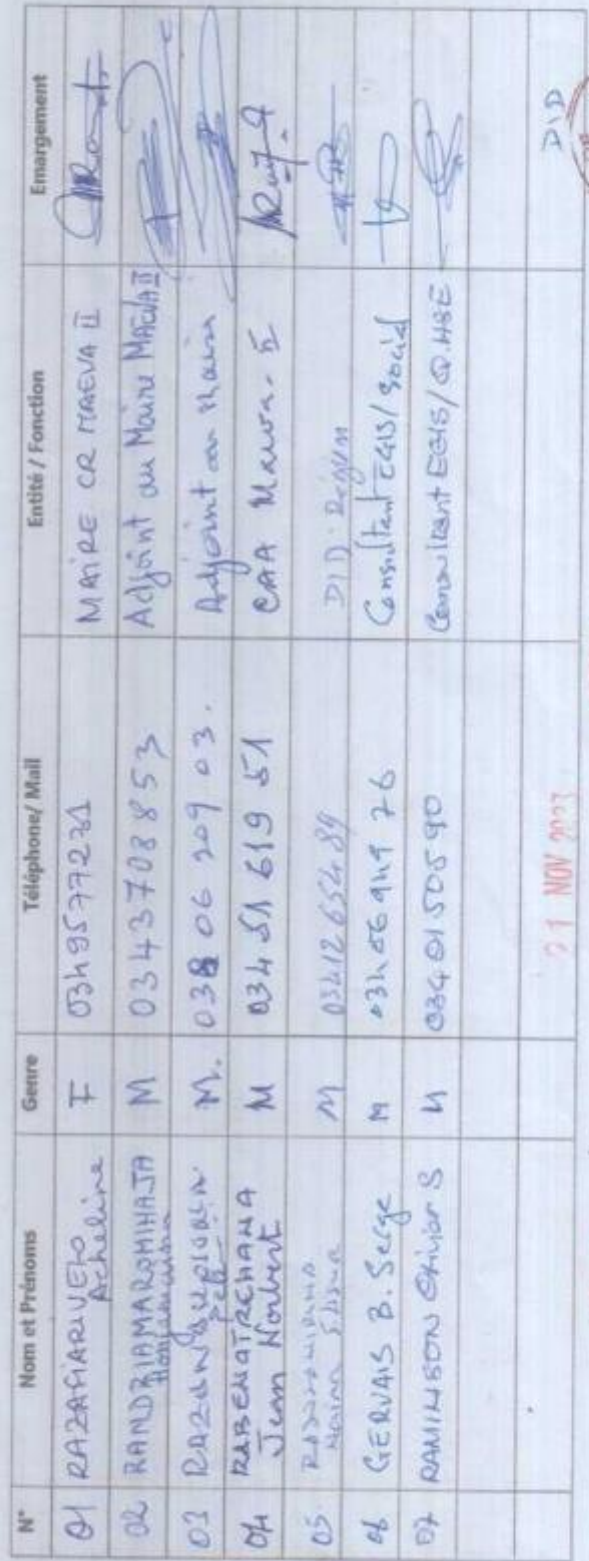 N° Nom et Prénoms Genre Téléphone/ Mail Entité / Fonction Emargement
01 RAZAFIARIVELO Acheline F 0349577231 MAIRE CR MAEVA II
02 RANDRIAMAROMIHAJA M 0343708853 Adjoint au Maire MAEVA II
03 M. 038 06 209 03. Adjoint au Maire
04 Jean Norbert M 034 51 619 51 CAA II
05 M 0341265489 DID Région
06 GERVAIS B. Serge M 0340694976 Consultant EGIS/ Social
07 Olivier S M 0340150590 Consultant EGIS/ Q.HSE
21 NOV
DID